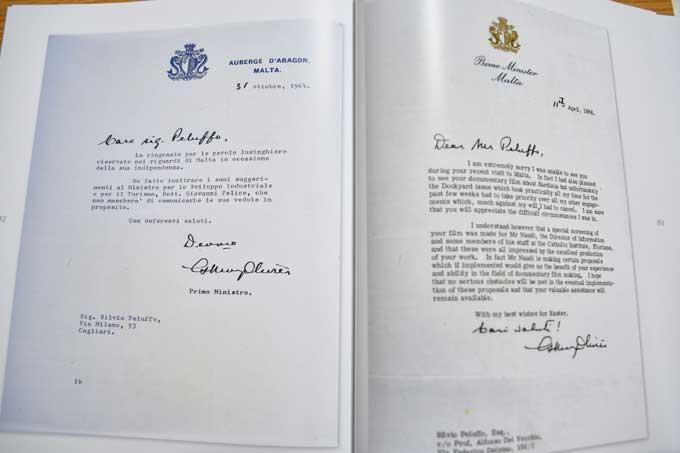 AUBERGE D'ARAGON,
MALTA.
31 ottobre, 1964.
Caro sig. Peluffo,
La ringrazio per le parole lusinghiere
riservate nei riguardi di Malta in occasione
della sua indipendenza.
Ho fatto inoltrare i suoi suggeri-
menti al Ministro per lo Sviluppo Industriale
e per il Turismo, Dott. Giovanni Felice, che
non mancherà di comunicarle le sue vedute in
proposito.
Con deferenti saluti.
Primo Ministro.
Sig. Silvio Peluffo,
Via Milano, 93
Cagliari.
Ib
Prime Minister
Malta
April,
Dear Mr Peluffo,
I am extremely sorry I was unable to see you
during your recent visit to Malta. In fact I had also planned
to see your documentary film about Sardinia but unfortunately
the Dockyard issue which took practically all my time for the
past few weeks had to take priority over all my other engage-
ments which, much against my will, I had to cancel. I am sure
that you will appreciate the difficult circumstances I was in.
I understand however that a special screening of
your film was made for Mr Naudi, the Director of Information
and some members of his staff at the Catholic Institute, Floriana,
and that these were all impressed by the excellent production
of your work. In fact Mr Naudi is making certain proposals
which if implemented would give us the benefit of your experience
and ability in the field of documentary film making. I hope
that no serious obstacles will be met in the eventual implementa-
tion of these proposals and that your valuable assistance will
remain available.
With my best wishes for Easter.
Cari saluti!
Silvio Peluffo, Esq.,
c/o Prof. Alfonso Del Vecchio,
Via Federico